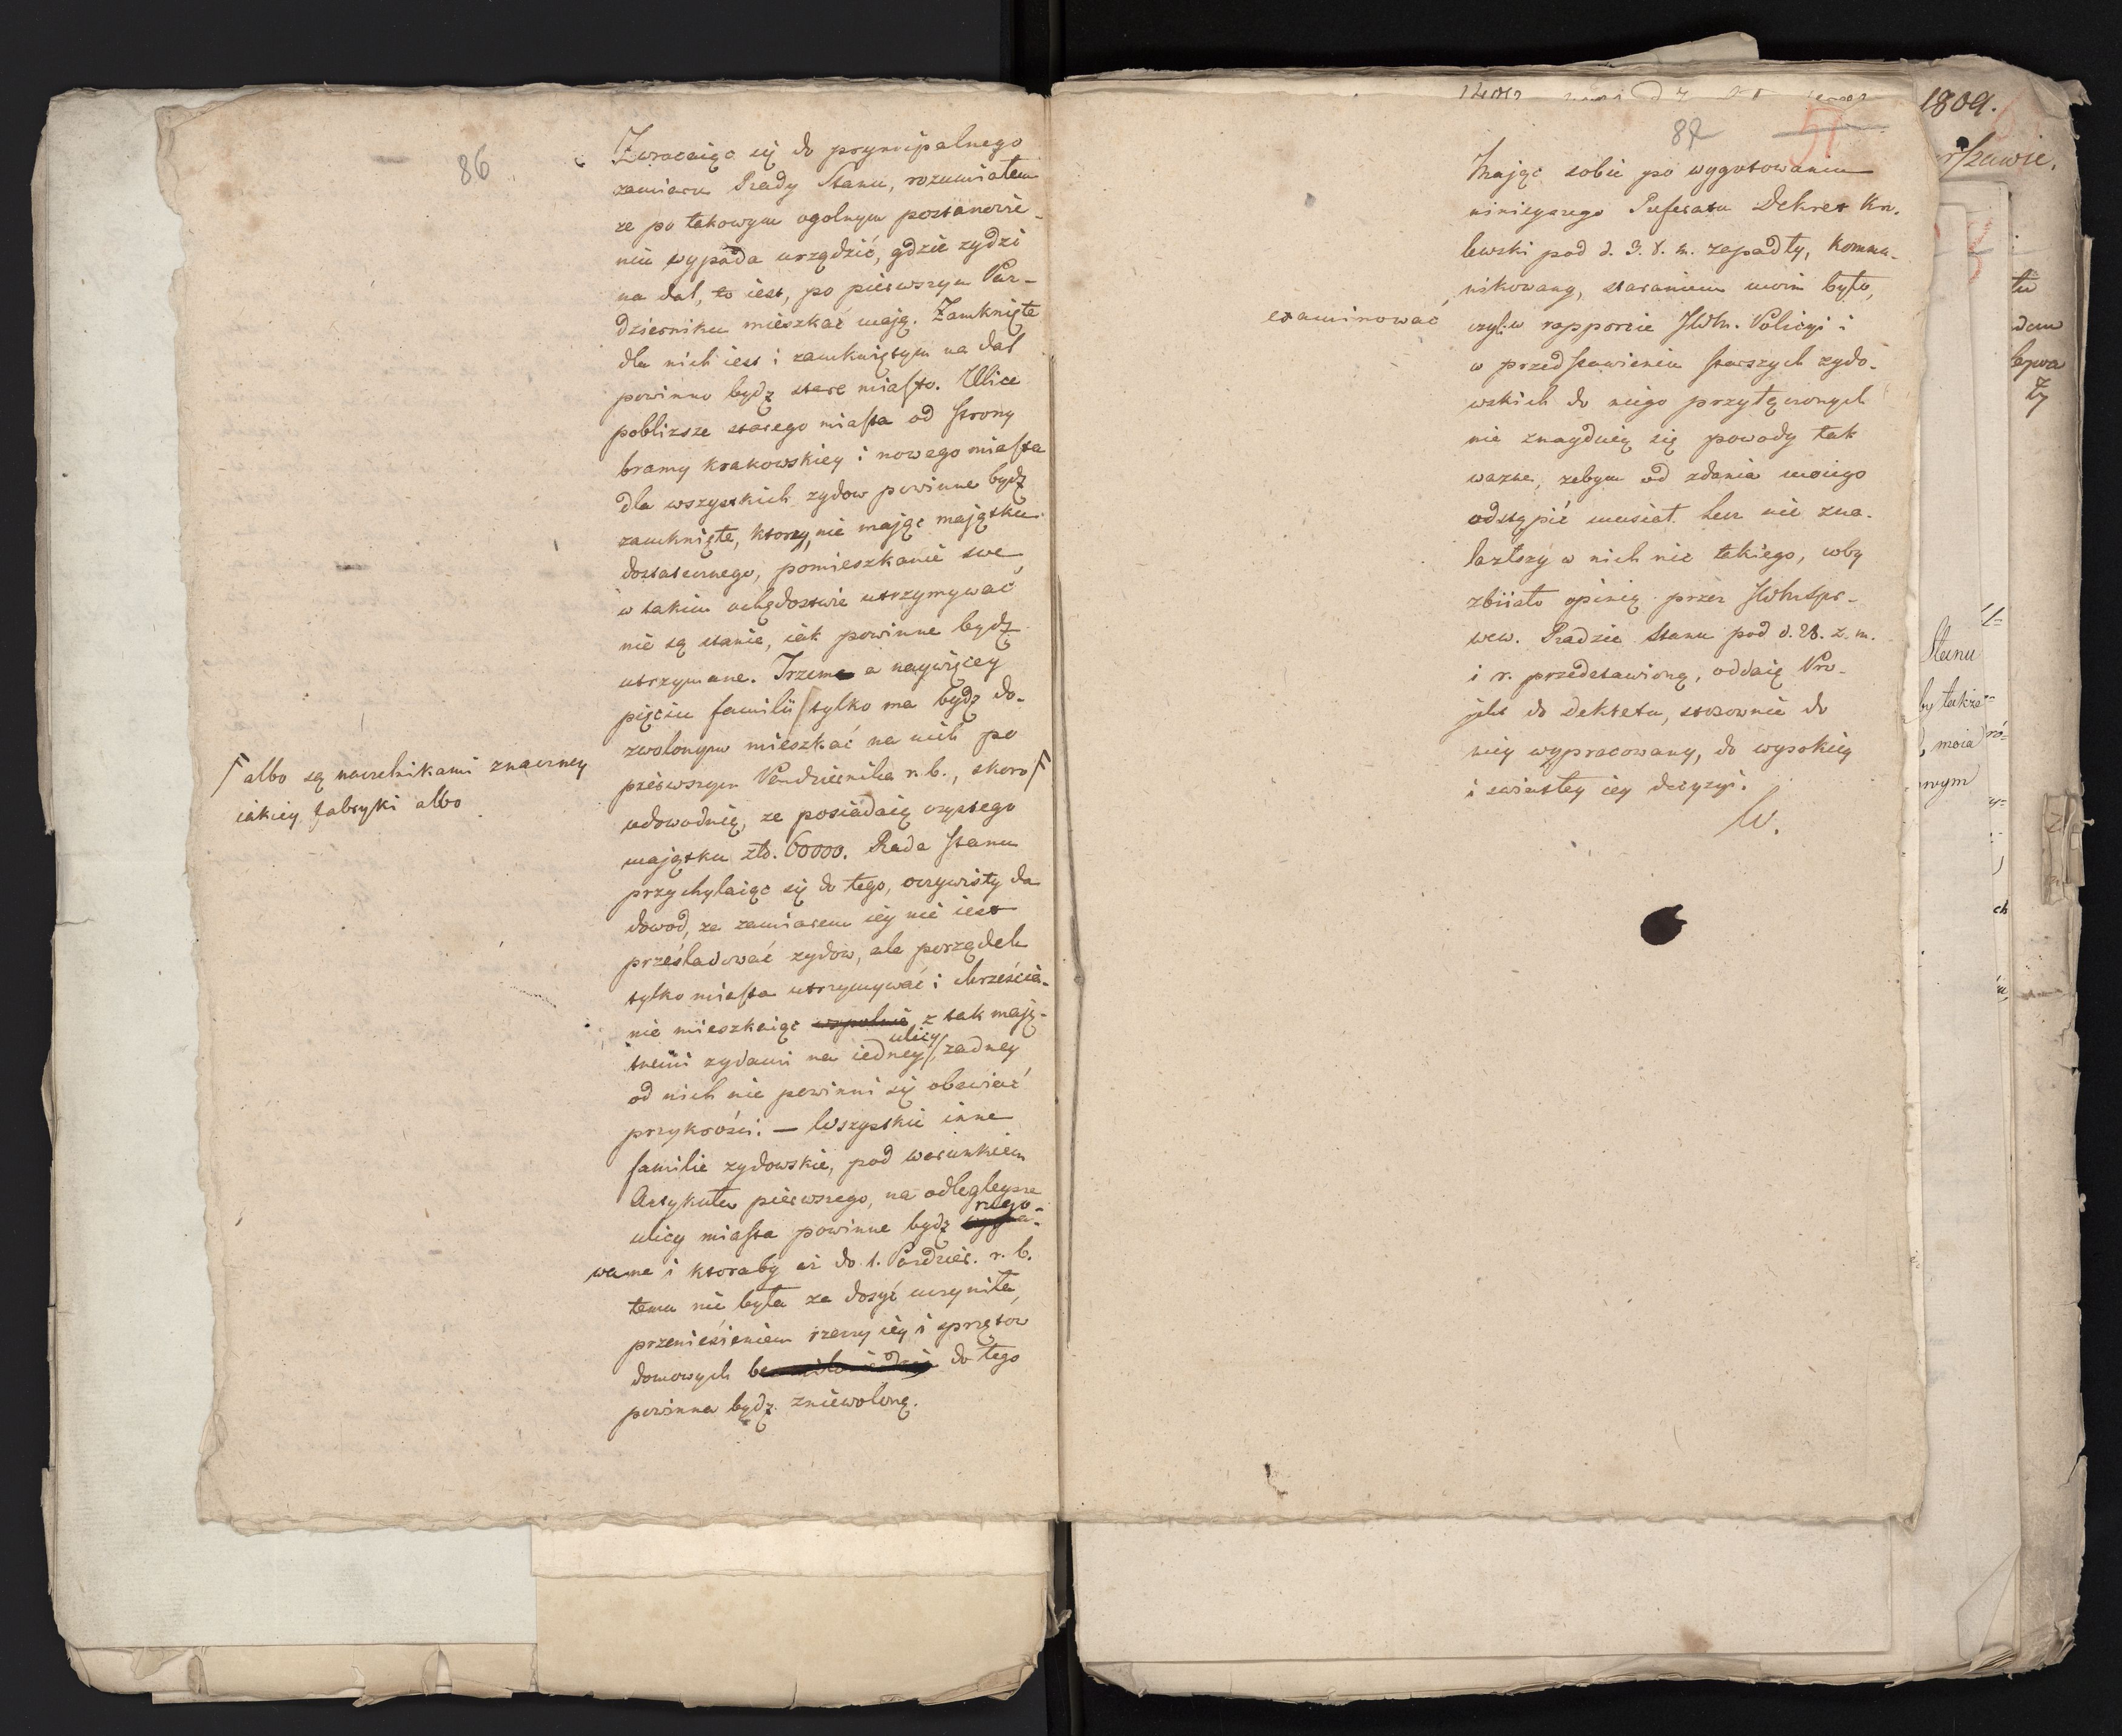 86
Zwracaiąc się do pryncipalnego
zamiaru Rady Stanu, rozumiałem
ze po takowym ogolnym postanowie-
niu wypada urządzić, gdzie zydzi
na dal, to iest, po pierwszym Paz-
dzierniku mieszkać mają. Zamknięte
dla nich iest i zamkniętym na dal
powinno bydź stare miasto. Ulice
poblizsze starego miasta od strony
bramy krakowskiey i nowego miasta
dla wszystkich zydow powinne bydź
zamknięte, ktorzy, nie mając maiątku
dostatecznego, pomieszkanie swe
w takim ochędostwie utrzymywać
nie są stanie, iak powinne bydź
utrzymane. Trzema a naywięcey
pięciu familii tylko ma bydź do-
zwolonym mieszkać na nich po
pierwszym Pazdziernika r. b., skoro
albo są naczelnikami znaczney
iakiey fabryki albo
udowodnią, ze posiadaią czystego
maiątku złt. 60000. Rada Stanu
przychylaiąc się do tego, oczywisty da
dowod, ze zamiarem iey nie iest
prześladować zydow, ale porządek
tylko miasta utrzymywać i chrześcia-
nie mieszkaiąc wspolnie z tak maię-
tnemi zydami na iedney ulicy zadney
od nich nie powinni się obawiać
przykrości. — Wszystkie inne
familie zydowskie, pod warunkiem
Artykułu pierwszego, na odlegleysze
ulicy miasta powinne bydź rugo-
wane i ktoraby az do 1. Pazdzier. r. b.
temu nie była za dosyć uczyniła,
przeniesieniem rzeczy iey i sprzętow
domowych do tego
powinna bydź zniewoloną.
87
57
Mając sobie po wygotowaniu
ninieyszego Referatu Dekret Kro-
lewski pod d. 3. t. m. zapadły, kommu-
nikowany, staraniem moim było,
examinować
czyli w rapporcie JWM. Policyi i
w przedstawieniu starszych zydo-
wskich do niego przyłączonych
nie znayduią się powody tak
wazne, zebym od zdania moiego
odstąpić musiał. Lecz nie zna-
lazłszy w nich nic takiego, coby
zbiiało opinią przez JWMSpr-
wew. Radzie Stanu pod d. 28. z. m.
i r. przedstawioną, oddaię Pro-
jekt do Dekretu, stosownie do
niey wypracowany, do wysokiey
i swiatłey iey decyzyi.
W.
1809.
rszawie.
Stanu
by także
moia